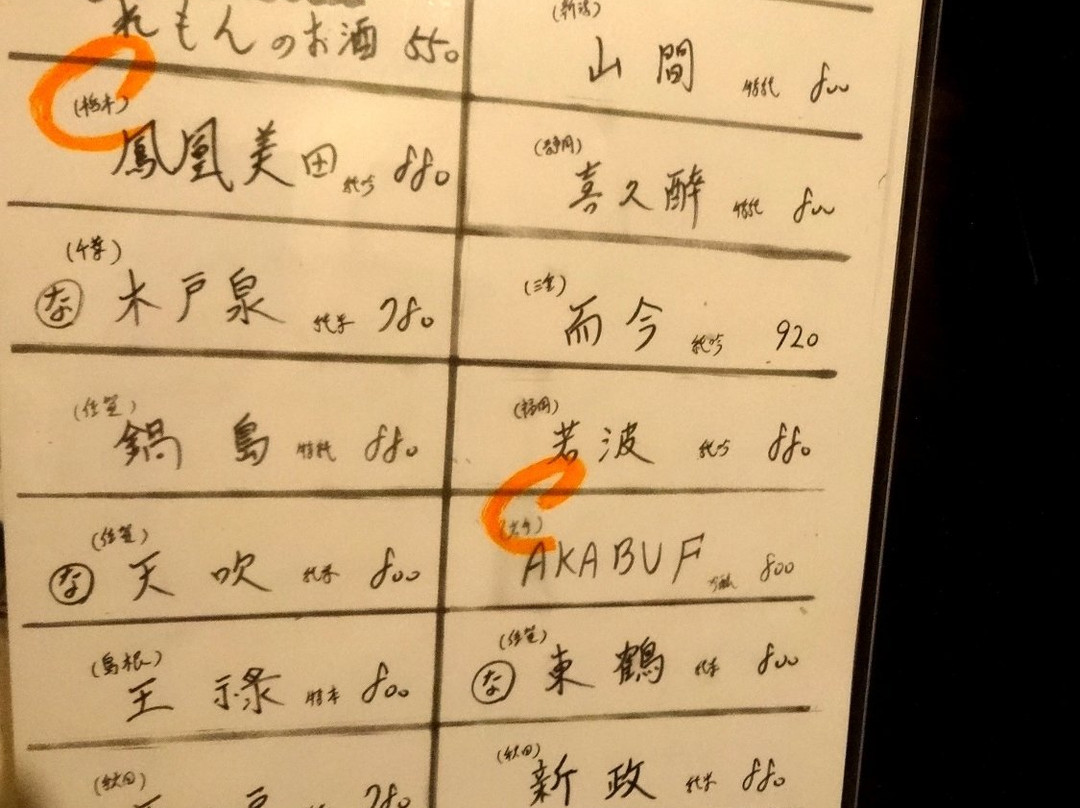 れもんのお酒 550
(栃木)
鳳凰美田 純吟 880
(千葉)
な 木戸泉 純米 780
(佐賀)
鍋島 特純 880
(佐賀)
な 天吹 純米 800
(島根)
王祿 特本 800
(秋田)
780
(新潟)
山間 特純 800
(静岡)
喜久酔 特純 800
(三重)
而今 純吟 920
(福岡)
若波 純吟 880
AKABUF 800
(佐賀)
な 東鶴 純米 800
(秋田)
新政 純米 880